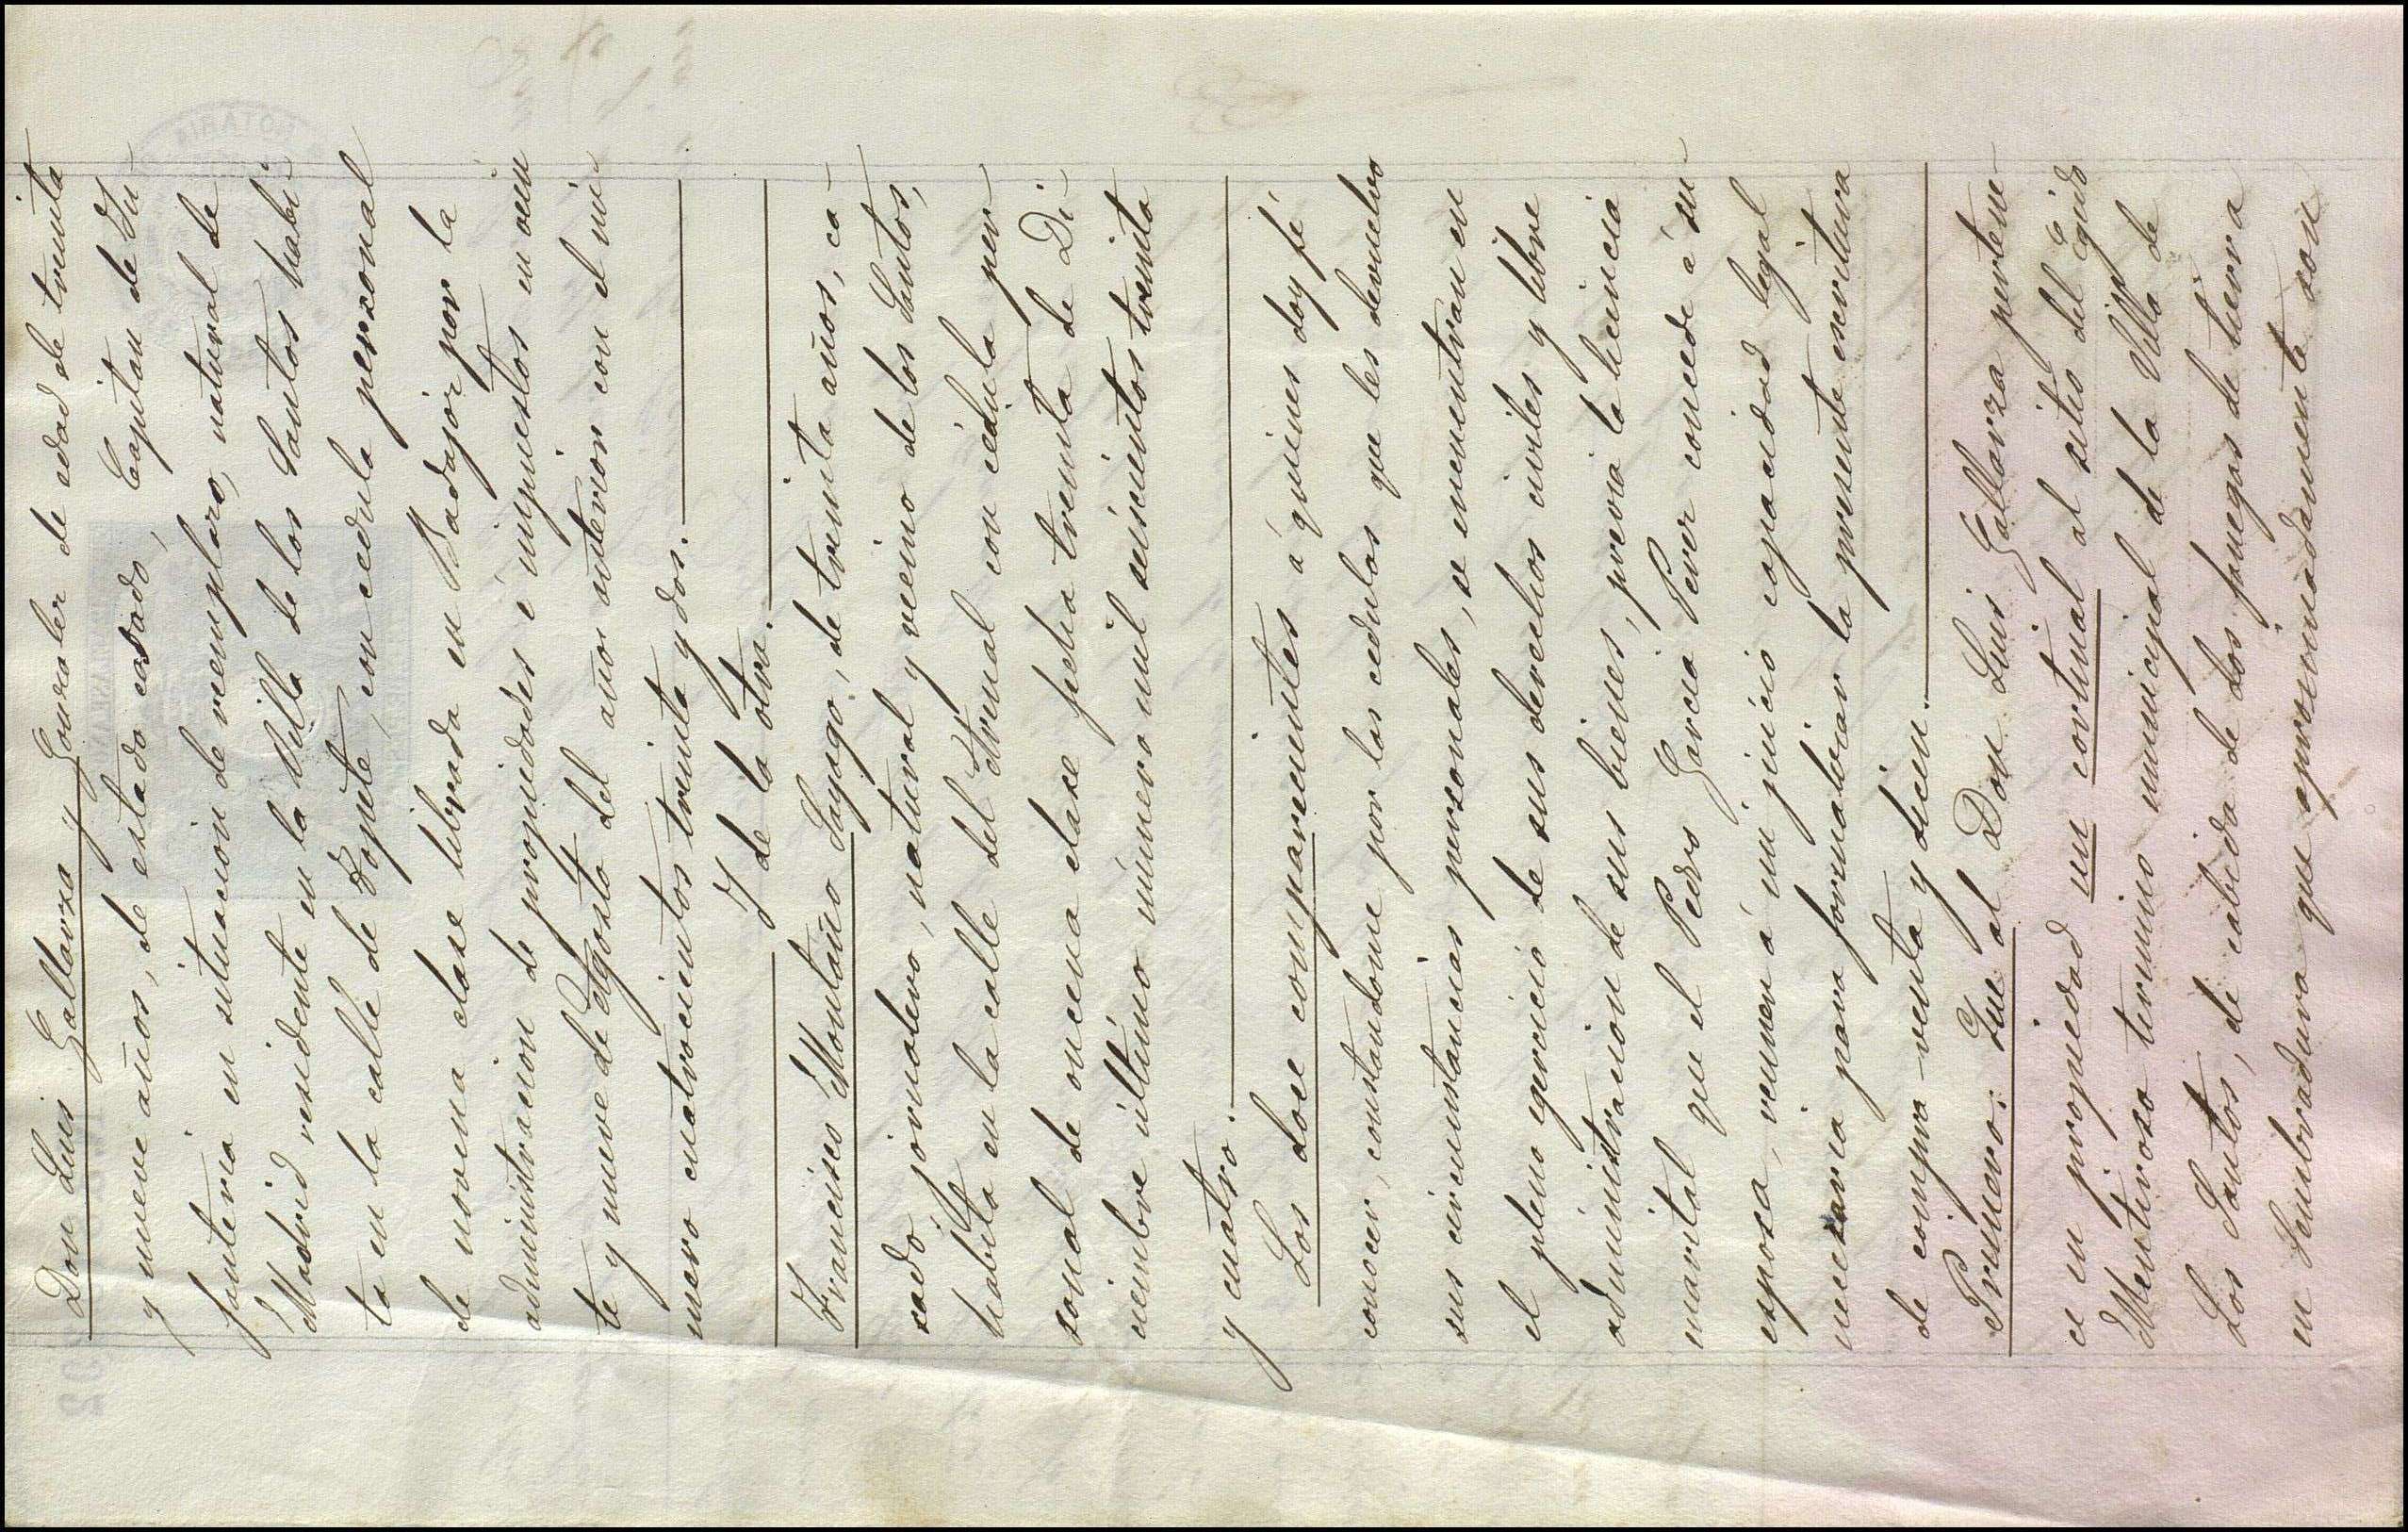 Don Luis Gallarza y Gonzalez de edad de treinta
y nueve años, de estado casado, Capitan de In-
fanteria en situacion de reemplazo, natural de
Madrid residente en la Villa de los Santos habi-
ta en la calle de Sopete, con cedula personal
de novena clase librada en Badajoz por la
administracion de propiedades é impuestos en vein
te y nueve de Agosto del año anterior con el nú-
mero cuatrocientos treinta y dos.
Y de la otra.
Francisco Montaño Sayago, de treinta años, ca-
sado, jornalero, natural y vecino de los Santos,
habita en la calle del Arrenal con cédula per
sonal de oncena clase fecha treinta de Di-
ciembre último número mil seiscientos treinta
y cuatro.
Los doce comparecientes á quienes doy fé
conocer, constandome por las cedulas que les devuelvo
sus circunstancias personales, se encuentran en
el pleno egercicio de sus derechos civiles y libre
administracion de sus bienes, previa la licencia
marital que el Pedro Garcia Perez concede á su
esposa, reunen á mi juicio capacidad legal
necesaria para formalizar la presente escritura
de compra-venta y dicen.
Primero: Que al Don Luis Gallarza pertene-
ce en propiedad un cortinal al sitio del Egido
Mentiroso termino municipal de la Villa de
Los Santos, de cabida de dos fanegas de tierra
en sembradura que aproximadamente son
NOTARIA